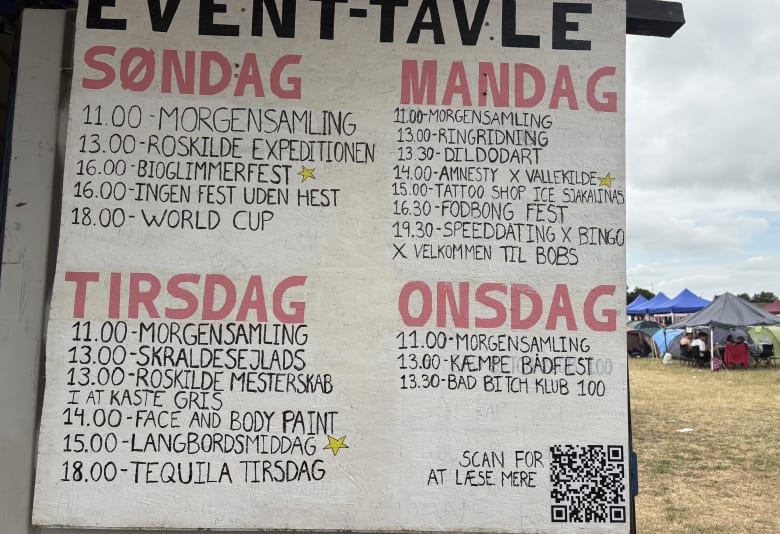 EVENT-TAVLE
SØNDAG
11.00-MORGENSAMLING
13.00-ROSKILDE EXPEDITIONEN
16.00-BIOGLIMMERFEST
16.00-INGEN FEST UDEN HEST
18.00-WORLD CUP
MANDAG
11.00-MORGENSAMLING
13.00-RINGRIDNING
13.30-DILDODART
14.00-AMNESTY X VALLEKILDE
15.00-TATTOO SHOP ICE SJAKALINAS
16.30-FODBONG FEST
19.30-SPEEDDATING X BINGO
X VELKOMMEN TIL BOBS
TIRSDAG
11.00-MORGENSAMLING
13.00-SKRALDESEJLADS
13.00-ROSKILDE MESTERSKAB
I AT KASTE GRIS
14.00-FACE AND BODY PAINT
15.00-LANGBORDSMIDDAG
18.00-TEQUILA TIRSDAG
ONSDAG
11.00-MORGENSAMLING
13.00-KÆMPE BÅDFEST
13.30-BAD BITCH KLUB 100
SCAN FOR
AT LÆSE MERE